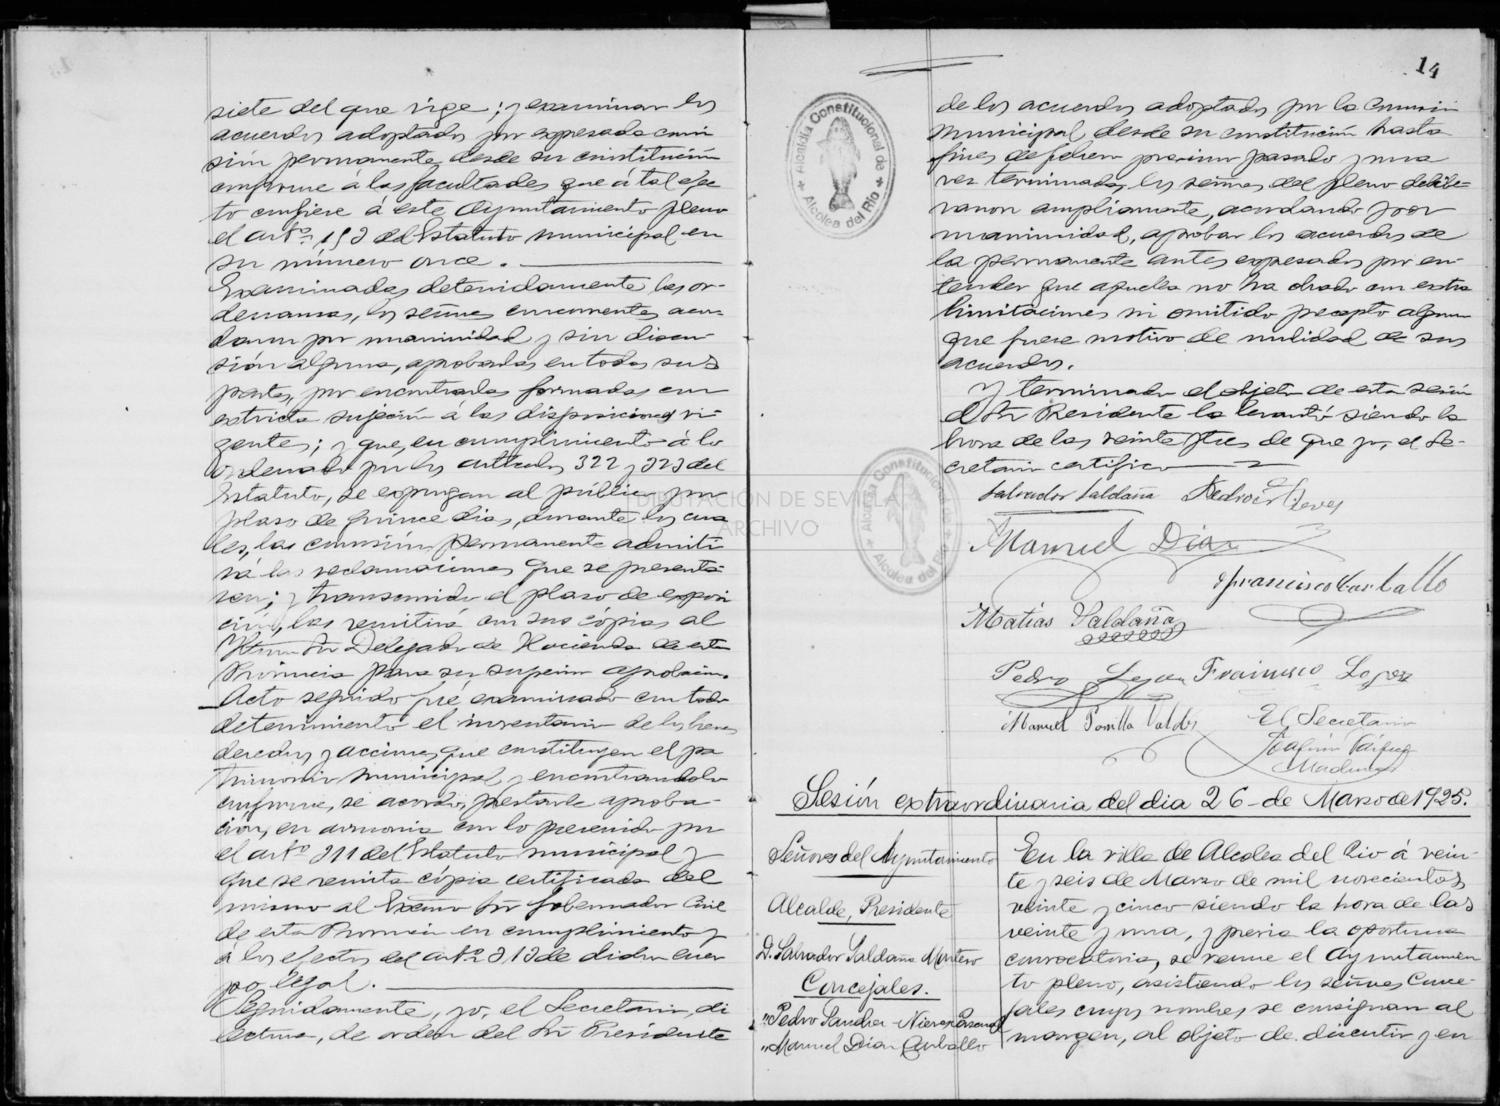 siete del que rige; y examinar los
acuerdos adoptados por expresada comi
sión permanente, desde su constitución
conforme á las facultades que á tal efec
to confiere á este Ayuntamiento pleno
el artº 153 del Estatuto municipal en
su número once.
Examinadas detenidamente las or-
denanzas, los señores concurrentes acor
daron por unanimidad y sin discu-
sión alguna, aprobarlas en todas sus
partes, por encontrarlas formadas con
estricta sujeción á las disposiciones vi-
gentes; y que, en cumplimiento á lo
ordenado por los artículos 322 y 323 del
Estatuto, se expongan al público por
plazo de quince dias, durante los cua
les, la comisión permanente admiti
rá las reclamaciones que se presenta-
ren; y transcurrido el plazo de exposi
ción, las remitirá con sus cópias al
Iltmo Sr Delegado de Hacienda de esta
Provincia para su superior aprobación.
Acto seguido fué examinado con todo
detenimiento el inventario de los bienes
derechos y acciones que constituyen el pa
trimonio municipal, y encontrandolo
conforme, se acordó, prestarle aproba-
ción, en armonia con lo prevenido por
el artº 311 del Estatuto municipal y
que se remita cópia certificada del
mismo al Excmo Sr Gobernador Civil
de esta Provincia en cumplimiento y
á los efectos del artº 313 de dicho cuer
po legal.
Seguidamente, yo, el Secretario, di
lectura, de orden del Sr Presidente
14
de los acuerdos adoptados por la Comisión
municipal desde su constitución hasta
fines de febrero proximo pasado y una
vez terminada, los señores del pleno delibe-
raron ampliamente, acordando por
unanimidad, aprobar los acuerdos de
la permanente antes expresados por en-
tender que aquella no ha obrado con extra
limitaciones ni omitido precepto alguno
que fuere motivo de nulidad de sus
acuerdos.
Y terminado el objeto de esta sesión
el Sr Presidente la levantó siendo la
hora de las veinte y tres de que yo, el Se-
cretario certifico
Alcaldía Constitucional de
Alcolea del Río
Alcaldía Constitucional de
Alcolea del Río
DIPUTACIÓN DE SEVILLA
ARCHIVO
Salvador Saldaña Pedro S Nieves
Manuel Diaz
Francisco Carballo
Matias Saldaña
Pedro Francisco Lopez
Manuel Ponilla Valdés El Secretario
Joaquin
Sesión extraordinaria del dia 26 de Marzo de 1925.
Señores del Ayuntamiento
Alcalde, Presidente
D. Salvador Saldaña Montero
Concejales.
" Pedro Sanchez-Nieves Pascual
" Manuel Diaz Carballo
En la villa de Alcolea del Rio á vein-
te y seis de Marzo de mil novecientos
veinte y cinco siendo la hora de las
veinte y una, y previa la oportuna
convocatoria, se reune el Ayuntamien
to pleno, asistiendo los señores Conce-
jales cuyos nombres se consignan al
margen, al objeto de discutir y en